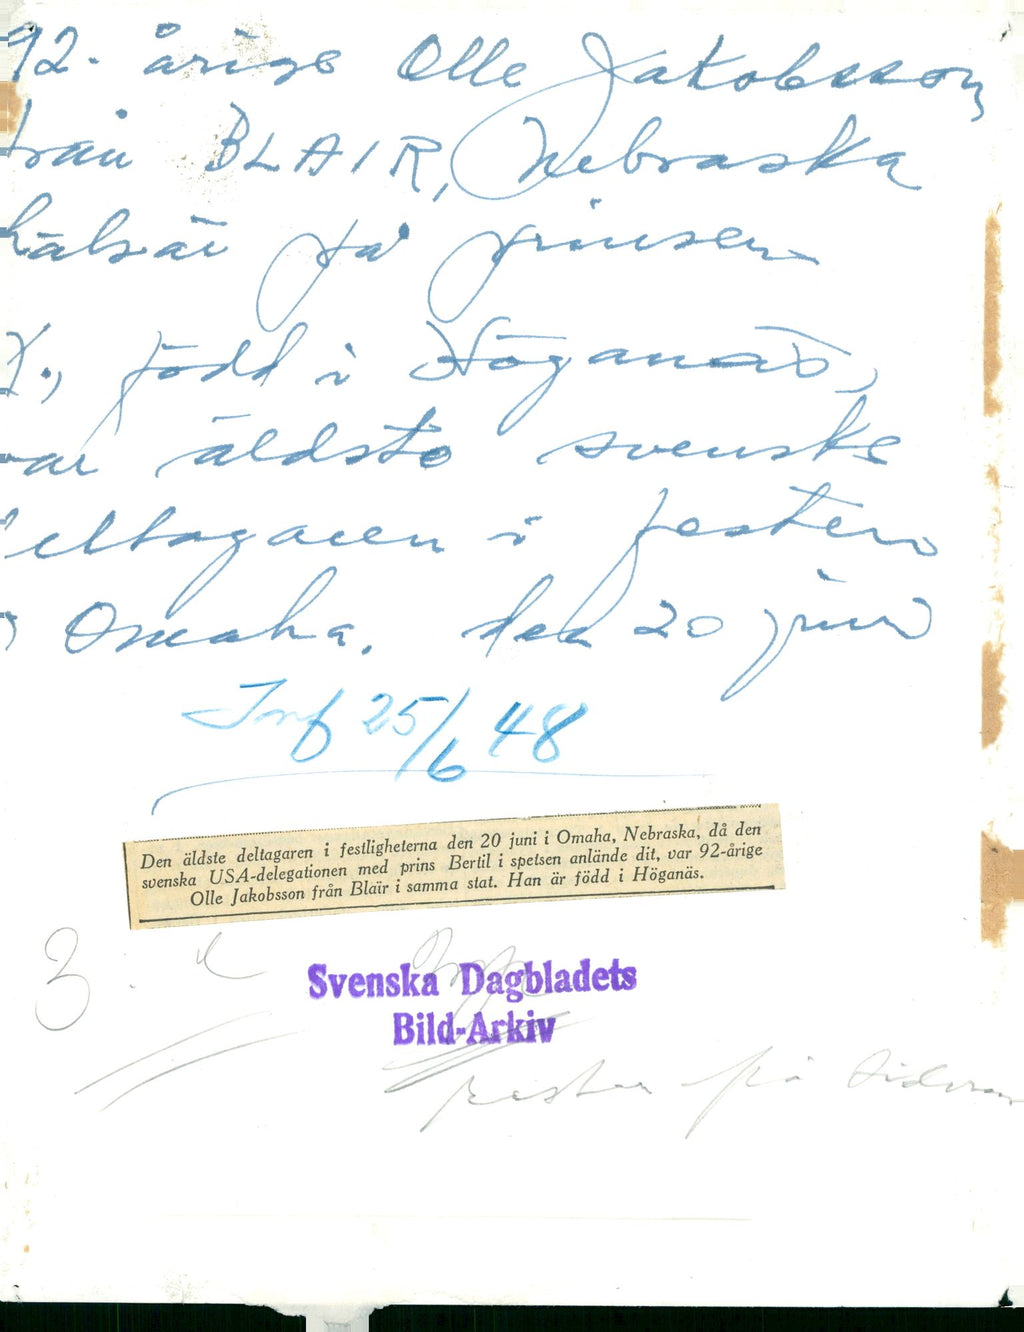 92-årige Olle Jakobsson
från BLAIR, Nebraska
hälsar på prinsen
J., född i Höganäs,
var äldste svenske
deltagaren i festen
i Omaha. den 20 juni
Inf 25/6 48
Den äldste deltagaren i festligheterna den 20 juni i Omaha, Nebraska, då den
svenska USA-delegationen med prins Bertil i spetsen anlände dit, var 92-årige
Olle Jakobsson från Blair i samma stat. Han är född i Höganäs.
3
Svenska Dagbladets
Bild-Arkiv